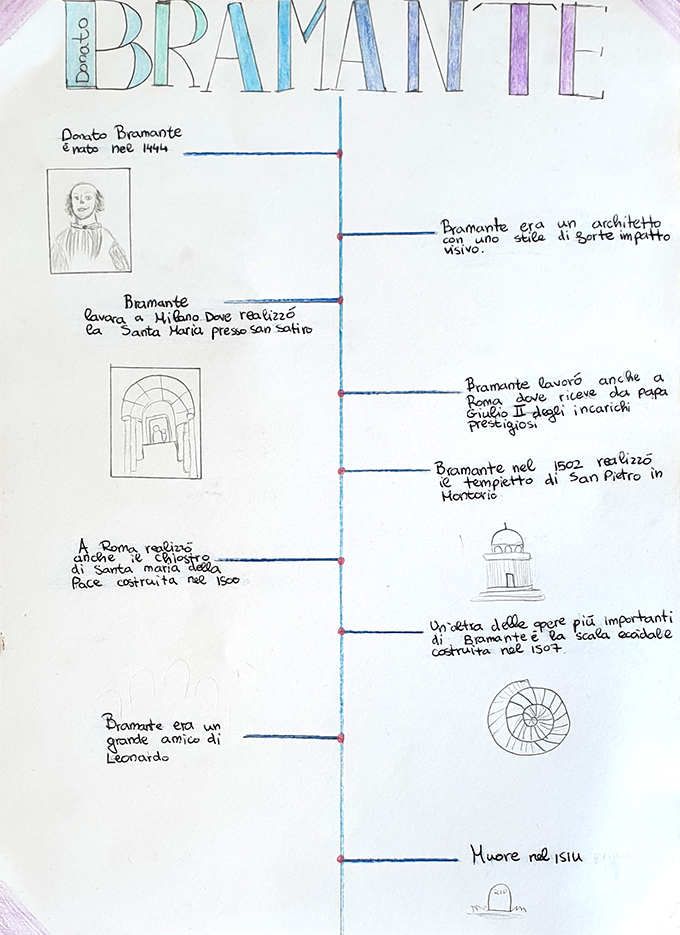 Donato
BRAMANTE
Donato Bramante
é nato nel 1444
Bramante era un architetto
con uno stile di forte impatto
visivo.
Bramante
lavora a Milano Dove realizzó
la Santa Maria presso san satiro
Bramante lavoró anche a
Roma dove riceve da papa
Giulio II degli incarichi
prestigiosi
Bramante nel 1502 realizzó
il tempietto di San Pietro in
Montorio
A Roma realizzó
anche il chiostro
di Santa maria della
Pace costruita nel 1500
Un'altra delle opere piú importanti
di Bramante é la scala
costruita nel 1507.
Bramante era un
grande amico di
Leonardo
Muore nel 1514